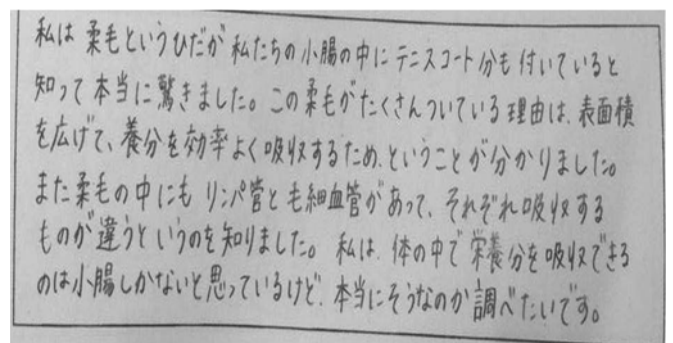 私は柔毛というひだが私たちの小腸の中にテニスコート分も付いていると
知って本当に驚きました。この柔毛がたくさんついている理由は、表面積
を広げて、養分を効率よく吸収するため、ということが分かりました。
また柔毛の中にもリンパ管と毛細血管があって、それぞれ吸収する
ものが違うというのを知りました。私は、体の中で栄養分を吸収できる
のは小腸しかないと思っているけど、本当にそうなのか調べたいです。